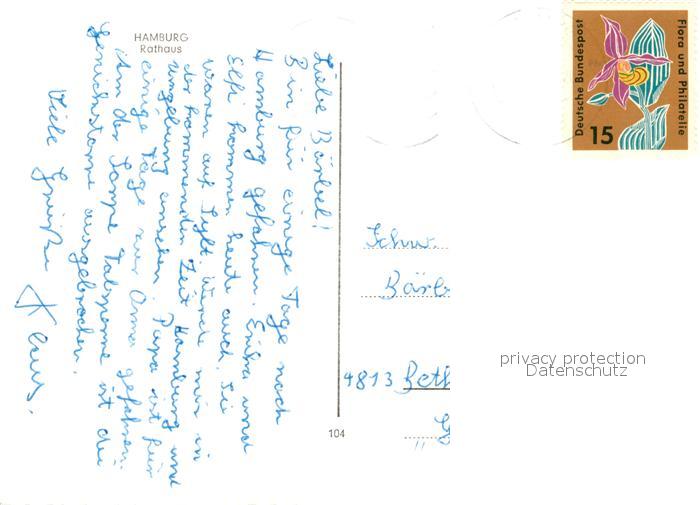 HAMBURG
Rathaus
Liebe Bärbel!
Bin für einige Tage nach
Hamburg gefahren. Erika und
Elfi kommen heute auch. Sie
waren auf Sylt. Werde mir in
der kommenden Zeit Hamburg und
Umgebung ansehen. Papa ist für
einige Tage zur Oma gefahren.
An der Talsperre ist die
ausgebrochen.
Viele Grüße
Klaus.
104
Deutsche Bundespost
Flora und Philatelie
15
Schw.
Bärb
4813 Beth
privacy protection
Datenschutz